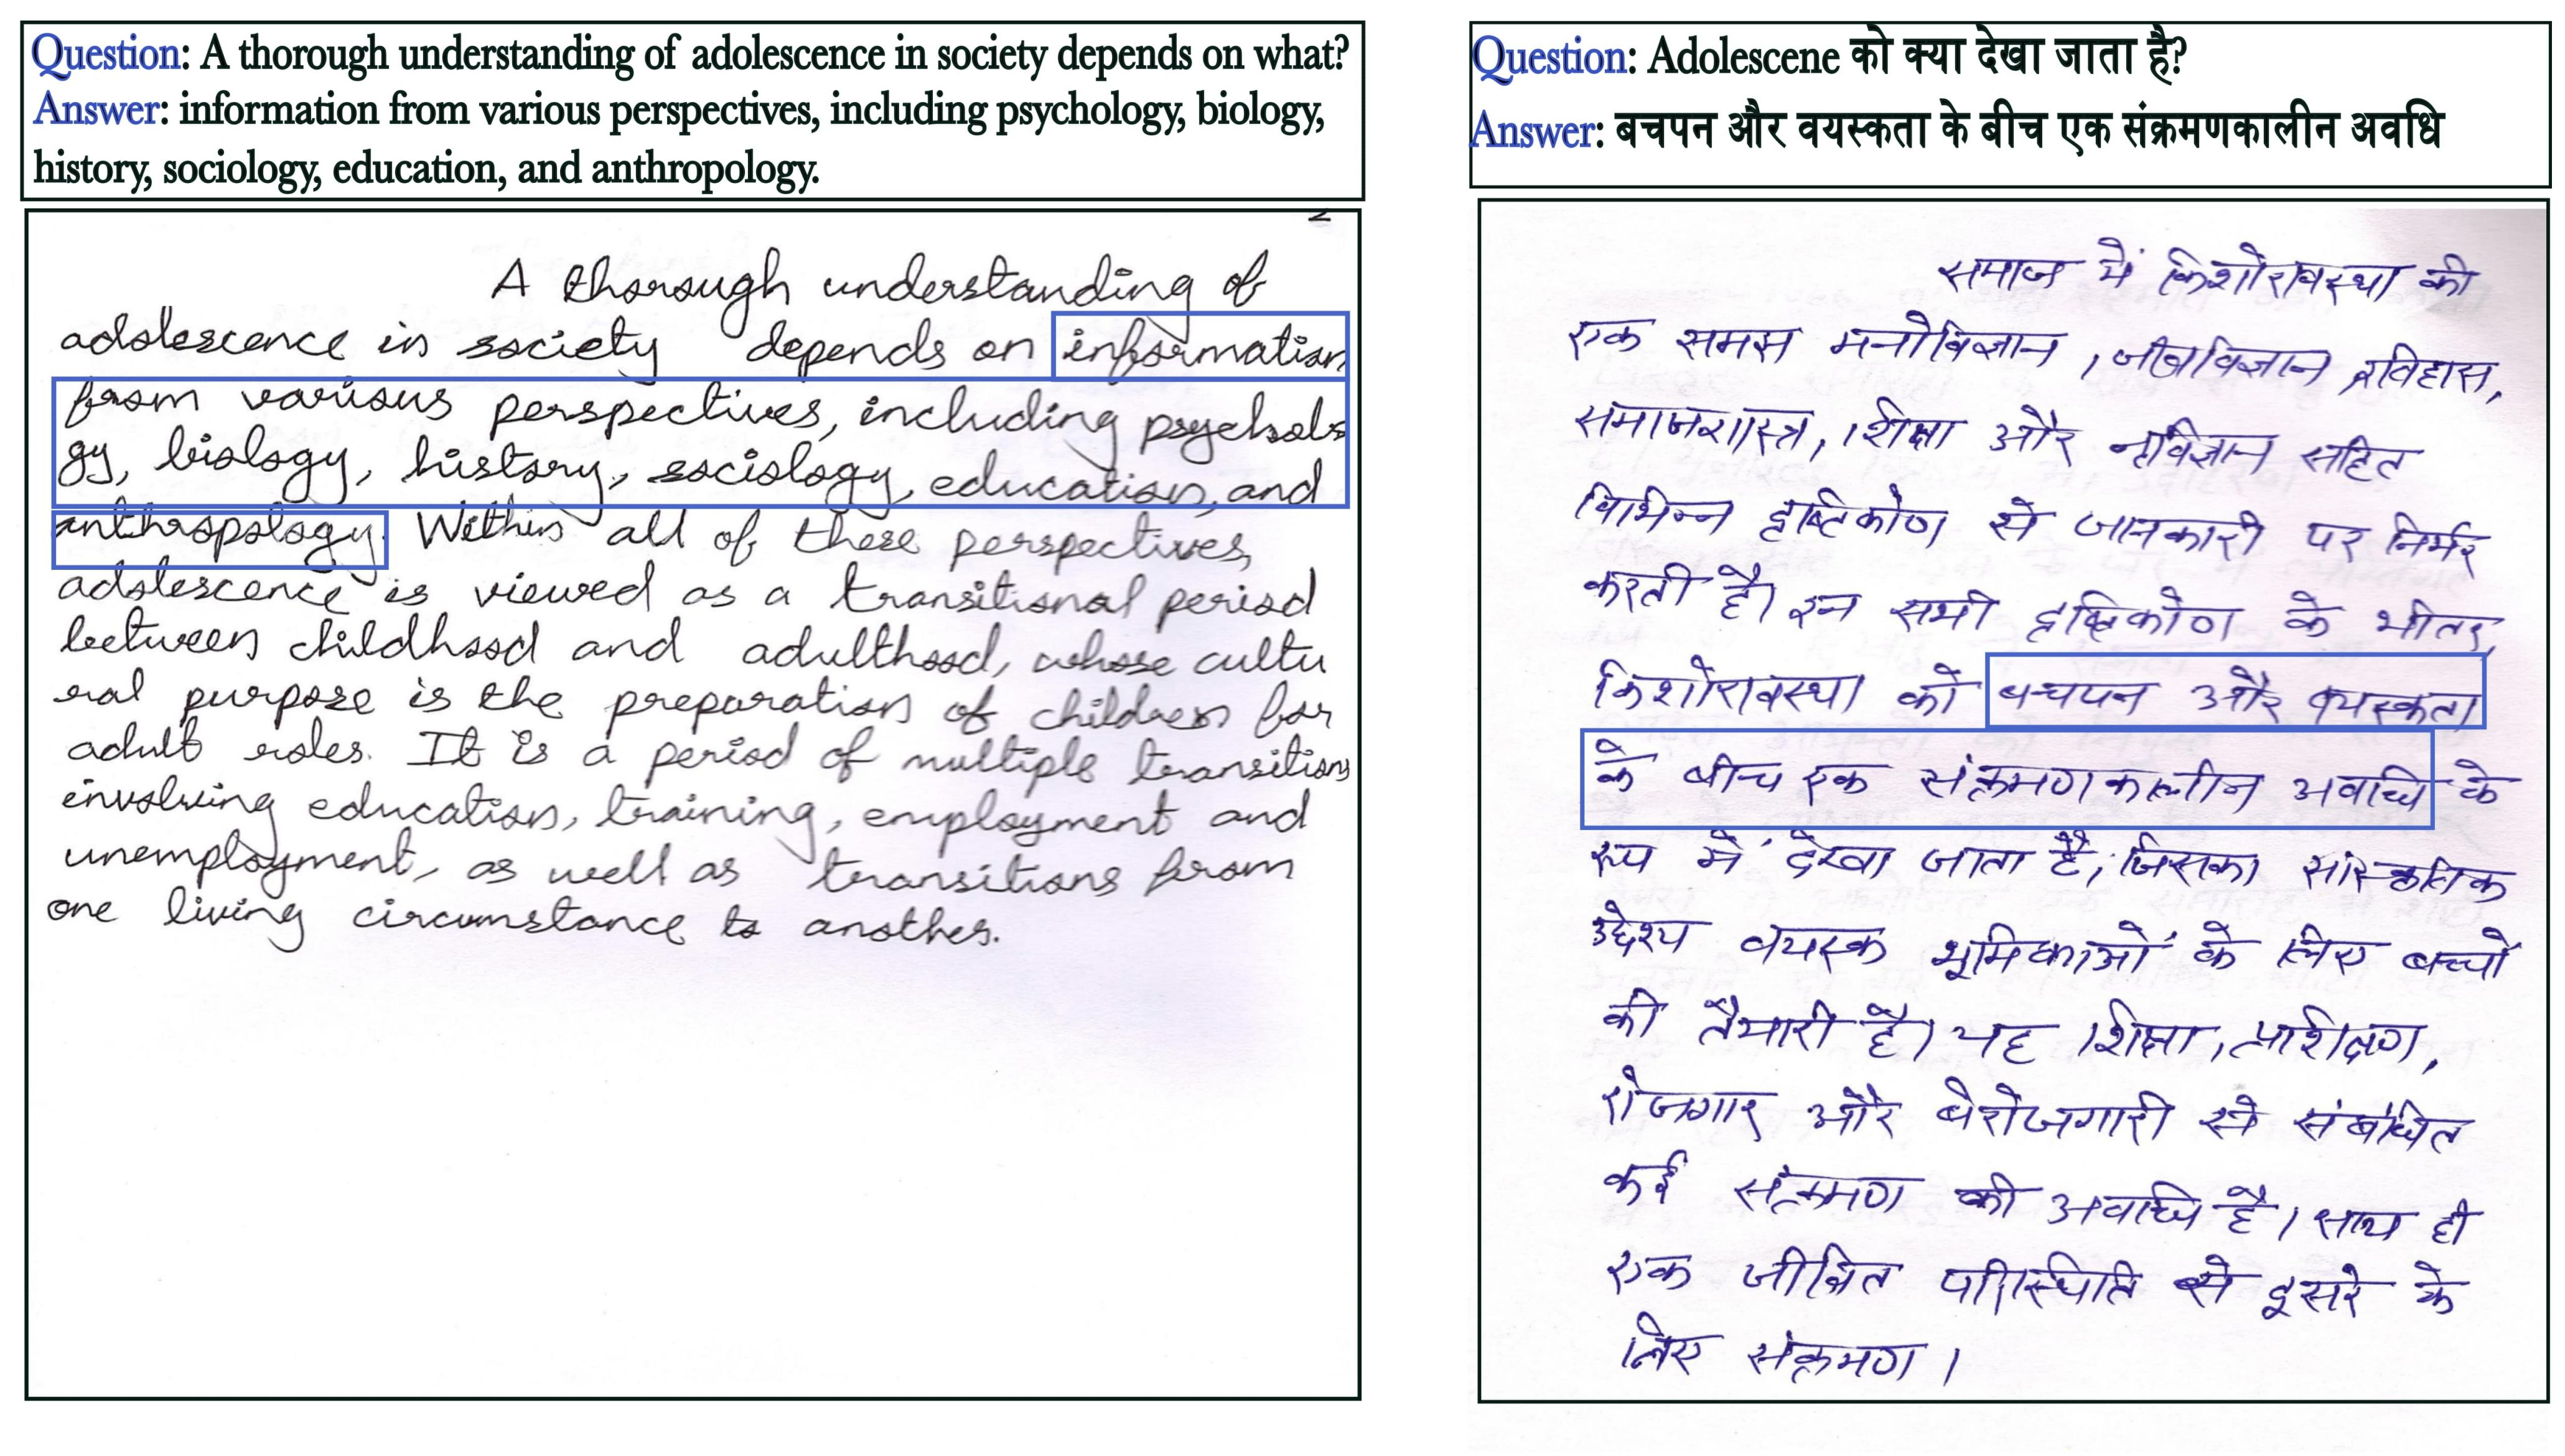 Question: A thorough understanding of adolescence in society depends on what?
Answer: information from various perspectives, including psychology, biology,
history, sociology, education, and anthropology.
2
A thorough understanding of
adolescence in society depends on information
from various perspectives, including psycholo
gy, biology, history, sociology, education, and
anthropology. Within all of these perspectives,
adolescence is viewed as a transitional period
between childhood and adulthood, whose cultu
ral purpose is the preparation of children for
adult roles. It is a period of multiple transitions
involving education, training, employment and
unemployment, as well as transitions from
one living circumstance to another.
Question: Adolescene को क्या देखा जाता है?
Answer: बचपन और वयस्कता के बीच एक संक्रमणकालीन अवधि
समाज में किशोरावस्था की
एक समस मनोविज्ञान, जीवविज्ञान इतिहास,
समाजशास्त्र, शिक्षा और नृविज्ञान सहित
विभिन्न दृष्टिकोण से जानकारी पर निर्भर
करती है। इन सभी दृष्टिकोण के भीतर,
किशोरावस्था को बचपन और वयस्कता
के बीच एक संक्रमणकालीन अवधि के
रूप में देखा जाता है, जिसका सांस्कृतिक
उद्देश्य वयस्क भूमिकाओं के लिए बच्चों
की तैयारी है। यह शिक्षा, प्रशिक्षण,
रोजगार और बेरोजगारी से संबंधित
कई संक्रमण की अवधि है। साथ ही
एक जीवित परिस्थिति से दूसरे के
लिए संक्रमण।